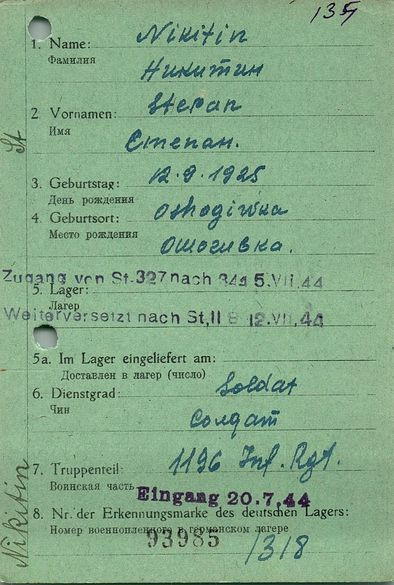 1357
1. Name: Nikitin
Фамилия
Никитин
2. Vornamen: Stepan
Имя
Степан.
3. Geburtstag: 12.9.1925
День рождения
4. Geburtsort: Oshogiwka
Место рождения
Ошогивка.
Zugang von St. 327 nach 344 5. VII. 44
5. Lager:
Лагер
Weiterversetzt nach St, II B 12. VII. 44
5a. Im Lager eingeliefert am:
Доставлен в лагер (число)
6. Dienstgrad: Soldat
Чин
Солдат
7. Truppenteil: 1196 Inf. Rgt.
Воинская часть
Eingang 20.7.44
8. Nr. der Erkennungsmarke des deutschen Lagers:
Номер военнопленного в германском лагере
93985 /318
St
Nikitin